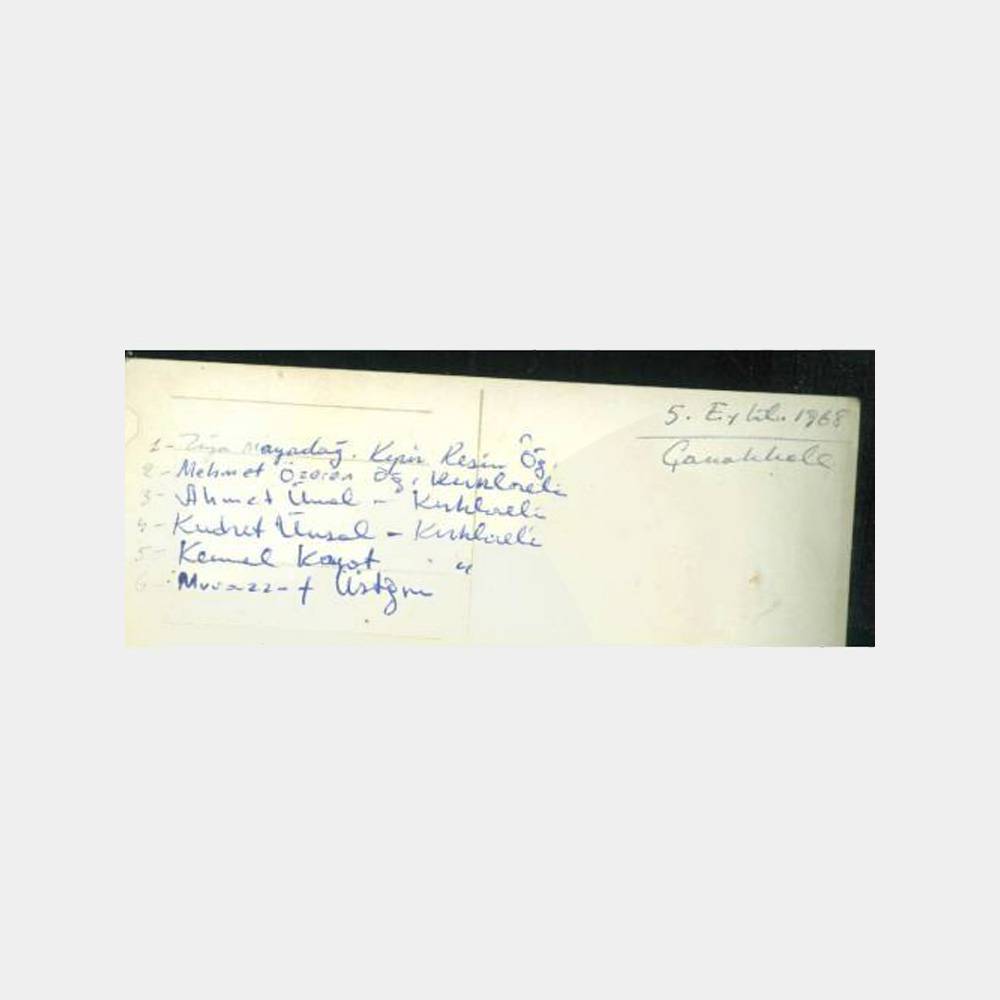 5. Eylül. 1968
Çanakkale
1- Ziya Mayadağ. Resim Öğ.
2- Mehmet Özcan Öğ. Kırklareli
3- Ahmet Ünal - Kırklareli
4- Kudret Ünsal - Kırklareli
5- Kemal Kayat "
6- Muvazzaf Üstğm